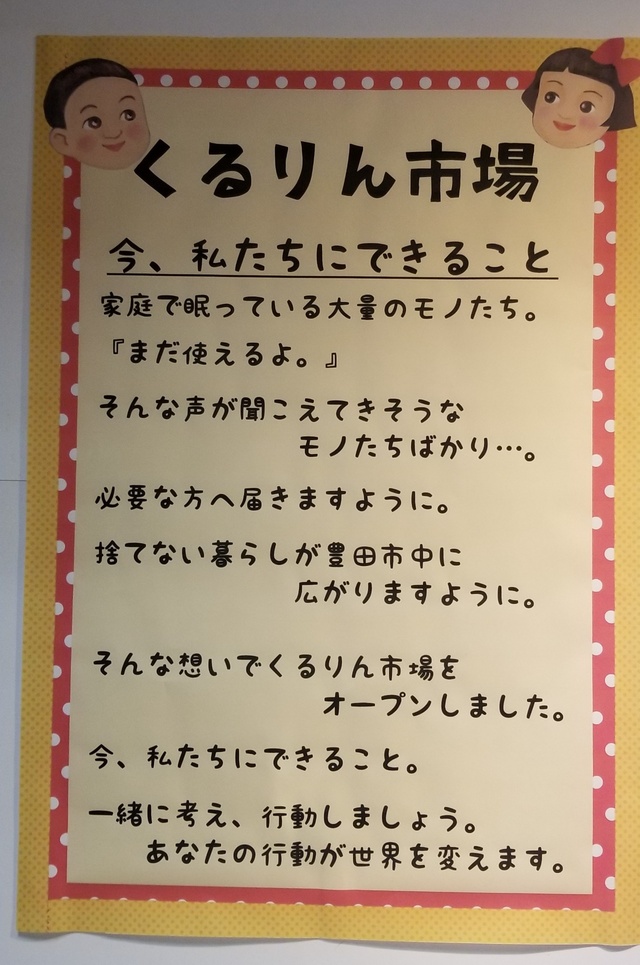 くるりん市場
今、私たちにできること
家庭で眠っている大量のモノたち。
『まだ使えるよ。』
そんな声が聞こえてきそうな
モノたちばかり…。
必要な方へ届きますように。
捨てない暮らしが豊田市中に
広がりますように。
そんな想いでくるりん市場を
オープンしました。
今、私たちにできること。
一緒に考え、行動しましょう。
あなたの行動が世界を変えます。